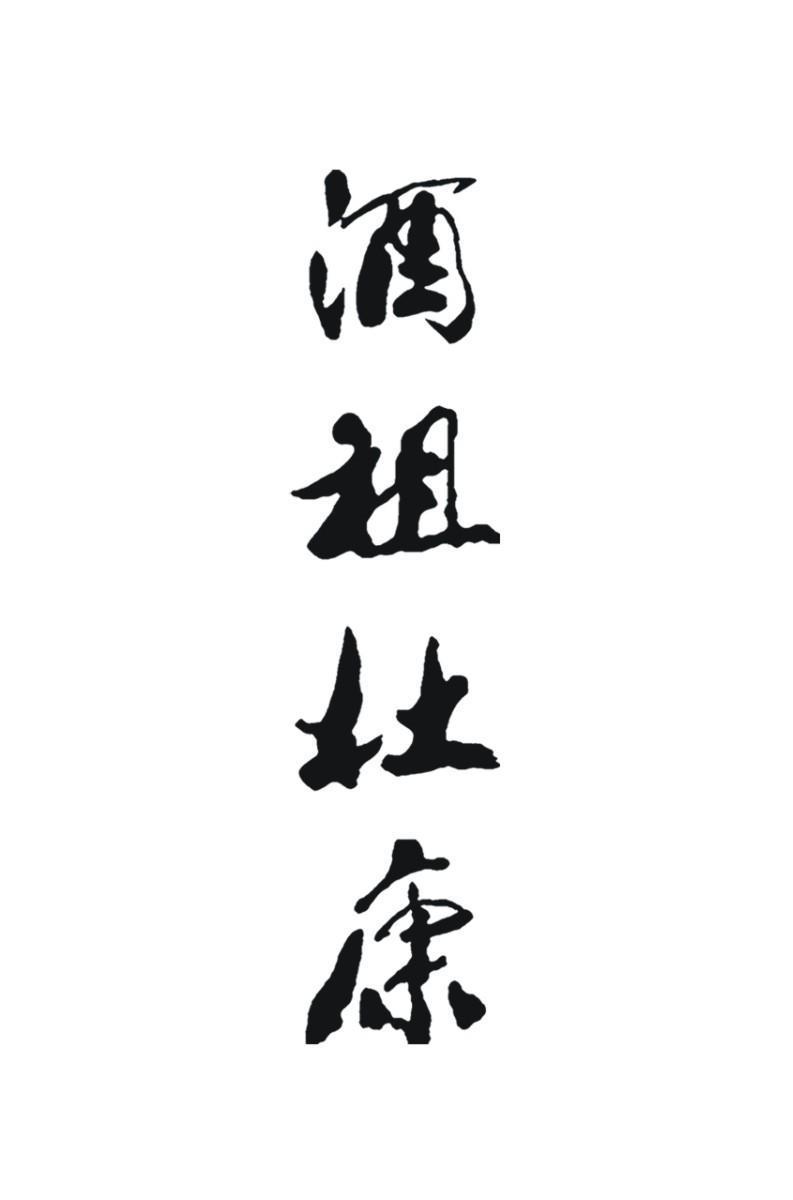 酒祖杜康